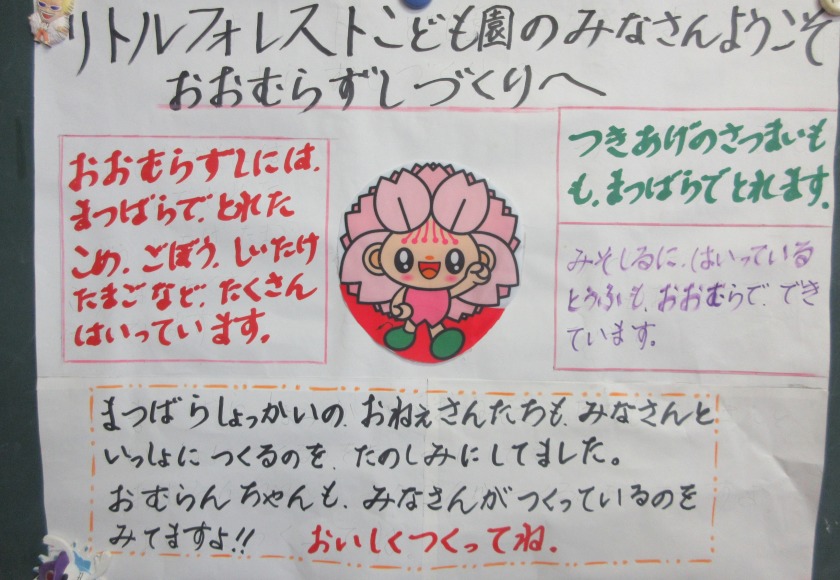 リトルフォレストこども園のみなさんようこそ
おおむらずしづくりへ
おおむらずしには、
まつばらで、とれた
こめ、ごぼう、しいたけ
たまごなど、たくさん
はいっています。
つきあげのさつまいも
も、まつばらでとれます。
みそしるに、はいっている
とうふも、おおむらで、でき
ています。
まつばらしょっかいの、おねぇさんたちも、みなさんと
いっしょにつくるのを、たのしみにしてました。
おむらんちゃんも、みなさんがつくっているのを
みてますよ!! おいしくつくってね。